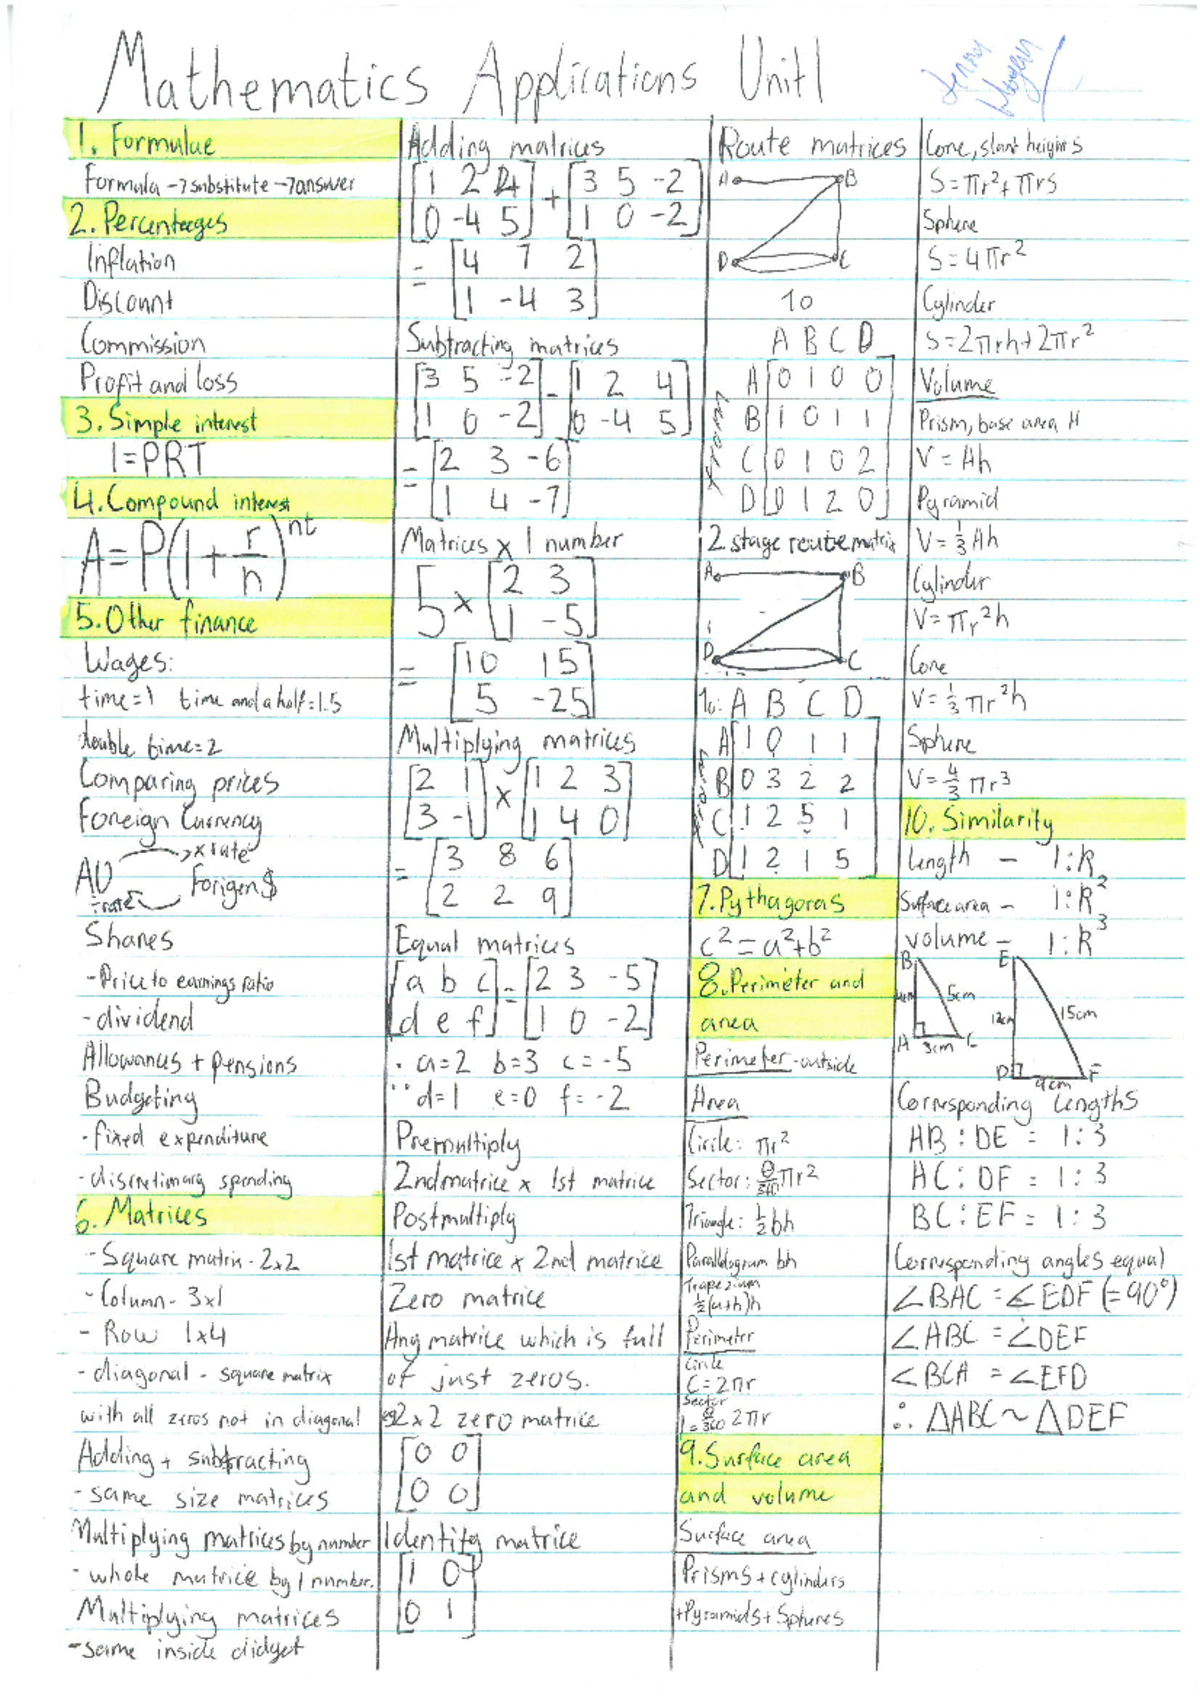 Mathematics Applications Unit 1
Jenna Morgan
1. Formulae
Formula → substitute → answer
2. Percentages
Inflation
Discount
Commission
Profit and loss
3. Simple interest
I=PRT
4. Compound interest
A=P(1+r/n)^nt
5. Other finance
Wages:
time=1 time and a half=1.5
double time=2
Comparing prices
Foreign Currency
× rate
AU Forigen $
÷ rate
Shares
-Price to earnings ratio
-dividend
Allowances + pensions
Budgeting
-fixed expenditure
-discretimary spending
6. Matrices
-Square matrix - 2x2
-Column - 3x1
- Row 1x4
-diagonal - square matrix
with all zeros not in diagonal
Adding + subtracting
-same size matrices
Multiplying matrices by number
-whole matrice by 1 number.
Multiplying matrices
-same inside didget
Adding matrices
[1 2 4] + [3 5 -2]
[0 -4 5] [1 0 -2]
= [4 7 2]
[1 -4 3]
Subtracting matrices
[3 5 -2] - [1 2 4]
[1 0 -2] [0 -4 5]
= [2 3 -6]
[1 4 -7]
Matrices x 1 number
5 × [2 3]
[1 -5]
= [10 15]
[5 -25]
Multiplying matrices
[2 1] × [1 2 3]
[3 -1] [1 4 0]
= [3 8 6]
[2 2 9]
Equal matrices
[a b c] = [2 3 -5]
[d e f] [1 0 -2]
∴ a=2 b=3 c=-5
d=1 e=0 f=-2
Premultiply
2nd matrice x 1st matrice
Postmultiply
1st matrice x 2nd matrice
Zero matrice
Any matrice which is full
of just zeros.
eg 2x2 zero matrice
[0 0]
[0 0]
Identity matrice
[1 0]
[0 1]
Route matrices
A B
D C
To
A B C D
From
A [0 1 0 0]
B [1 0 1 1]
C [0 1 0 2]
D [0 1 2 0]
2 stage route matrix
A B
D C
To: A B C D
From
A [1 0 1 1]
B [0 3 2 2]
C [1 2 5 1]
D [1 2 1 5]
7. Pythagoras
c²=a²+b²
8. Perimeter and
area
Perimeter - outside
Area
Circle: πr²
Sector: θ/360 πr²
Triangle: ½bh
Parallelogram bh
Trapezium
½(a+b)h
Perimeter
Circle
C=2πr
Sector
l=θ/360 2πr
9. Surface area
and volume
Surface area
Prisms + cylinders
+Pyramids + Spheres
Cone, slant height s
S=πr²+πrs
Sphere
S=4πr²
Cylinder
S=2πrh+2πr²
Volume
Prism, base area A
V=Ah
Pyramid
V=⅓Ah
Cylinder
V=πr²h
Cone
V=⅓πr²h
Sphere
V=4/3 πr³
10. Similarity
length - 1:R
Surface area - 1:R²
volume - 1:R³
B E
4cm 5cm 12cm 15cm
A 3cm C D 9cm F
Corresponding lengths
AB : DE = 1:3
AC : DF = 1:3
BC : EF = 1:3
Corresponding angles equal
∠BAC = ∠EDF (=90°)
∠ABC = ∠DEF
∠BCA = ∠EFD
∴ △ABC ~ △DEF